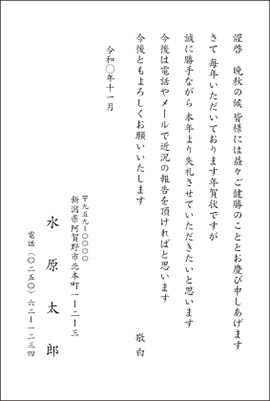 謹啓　晩秋の候 皆様には益々ご健勝のこととお慶び申しあげます
さて 毎年いただいております年賀状ですが
誠に勝手ながら 本年より失礼させていただきたいと思います
今後は電話やメールで近況の報告を頂ければと思います
今後ともよろしくお願いいたします
敬白
令和〇年十一月
〒九五九-〇〇〇〇
新潟県阿賀野市北本町一-二-三
水原太郎
電話（〇二五〇）六二-一二三四